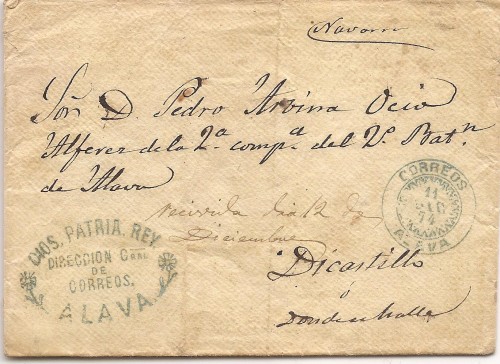 Navarra
Sör. D. Pedro Arvina Ocio
Alferez de la 2ª compª del 2º Batn
de Alava
recivida dia 12 de
Diciembre
Dicastillo
ó
donde se halle
DIOS, PATRIA, REY.
DIRECCION Gral
DE
CORREOS.
ALAVA
CORREOS
11
DIC
74
ALAVA